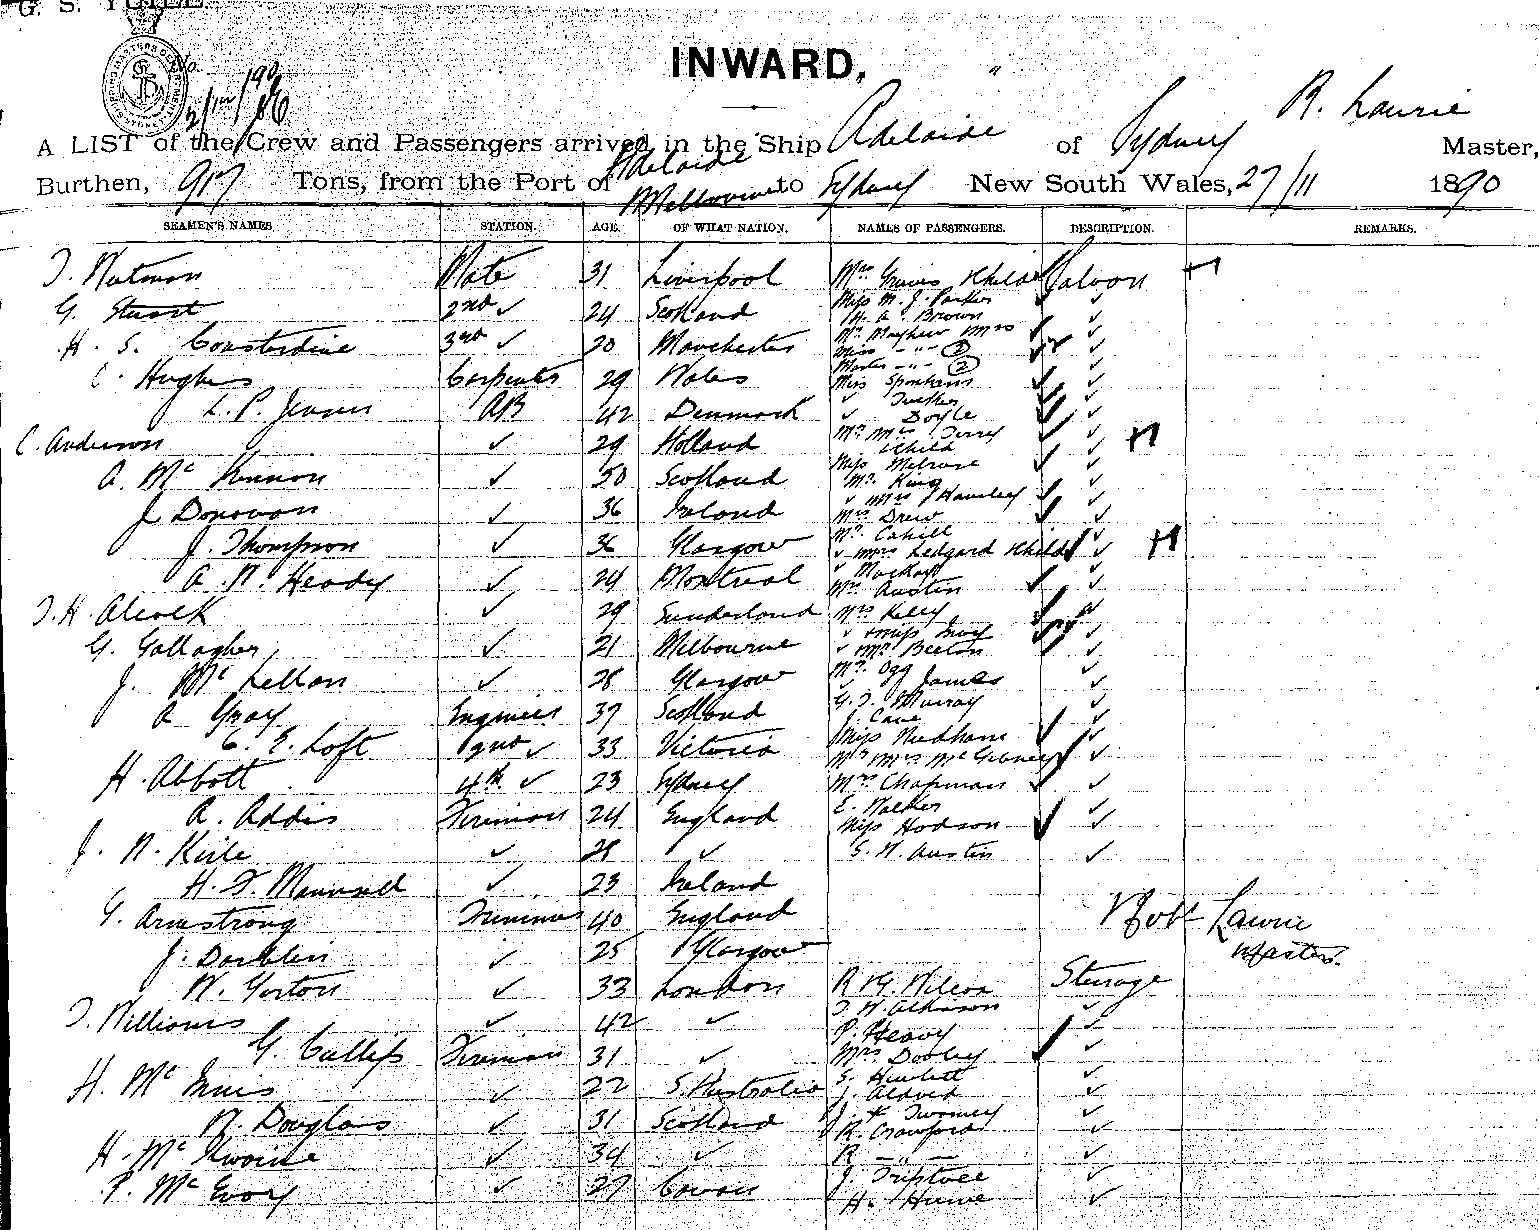 G. S. YUILL
INWARD,
A LIST of the Crew and Passengers arrived in the Ship Adelaide of Sydney R. Laurie Master,
Burthen, 917 Tons, from the Port of Adelaide Melbourne to Sydney New South Wales, 27/11 1890
SEAMEN'S NAMES STATION. AGE. OF WHAT NATION. NAMES OF PASSENGERS. DESCRIPTION. REMARKS.
Mate 31 Liverpool Mrs Graves & Child Saloon
G. Stuart 2nd ✓ 24 Scotland Miss M. J. Parker ✓
A. Brown
H. S. Considine 3rd ✓ 20 Manchester Mr Mayhew Mrs ✓
Miss - " - ②
Master - " - ②
C. Hughes Carpenter 29 Wales Miss ✓
✓ Tucker
L. P. Jensen AB 42 Denmark ✓ Doyle ✓
C. Anderson ✓ 29 Holland Mr Mrs Terry ✓
& Child
A. Mc Kinnon ✓ 50 Scotland Miss Melrose ✓
Mr. King
✓ Mrs Hamley ✓
J. Donovan ✓ 36 Ireland Mrs Drew ✓
Mr. Cahill
J. Thompson ✓ 36 Glasgow ✓ Mrs Ledgard & Child ✓
✓ Mackay
A. W. Heady ✓ 24 Montreal Mr. Austin ✓
T. H. Alcock ✓ 29 Sunderland Mrs Kelly ✓
✓ Miss
G. Gallagher ✓ 21 Melbourne ✓ Mr Beeton ✓
J. Mc Lellan ✓ 28 Glasgow Mr. Ogg ✓
James
A Gray Engineer 37 Scotland G. T. Murray ✓
J. Cave
C. E. Loft 2nd ✓ 33 Victoria Miss Needham ✓
Mr Mrs McGibney
H. Abbott 4th ✓ 23 Sydney Mrs Chapman ✓
E. Walker
A. Addis Fireman 24 England Miss Hodson ✓
J. W. Kirle ✓ 28 ✓ S. W. Austin ✓
H. F. Maunsell ✓ 23 Ireland
G. Armstrong Trimmer 40 England Robt Laurie
J. ✓ 25 Glasgow Master.
W. Gorton ✓ 33 London R & G. Wilcox Steerage
T. Williams ✓ 42 ✓ T. W. Atkinson ✓
P. Heavy ✓
G. Fireman 31 ✓ Mrs Dooley ✓
H. Mc Innis ✓ 22 S. Australia S. Hewlett ✓
J. Aldred ✓
W. Douglass ✓ 31 Scotland J. & Twomey ✓
R. Crawford ✓
H. Mc ✓ 34 ✓ R - " - ✓
P. Mc Evoy ✓ 27 J. Triptree ✓
H. Hume ✓